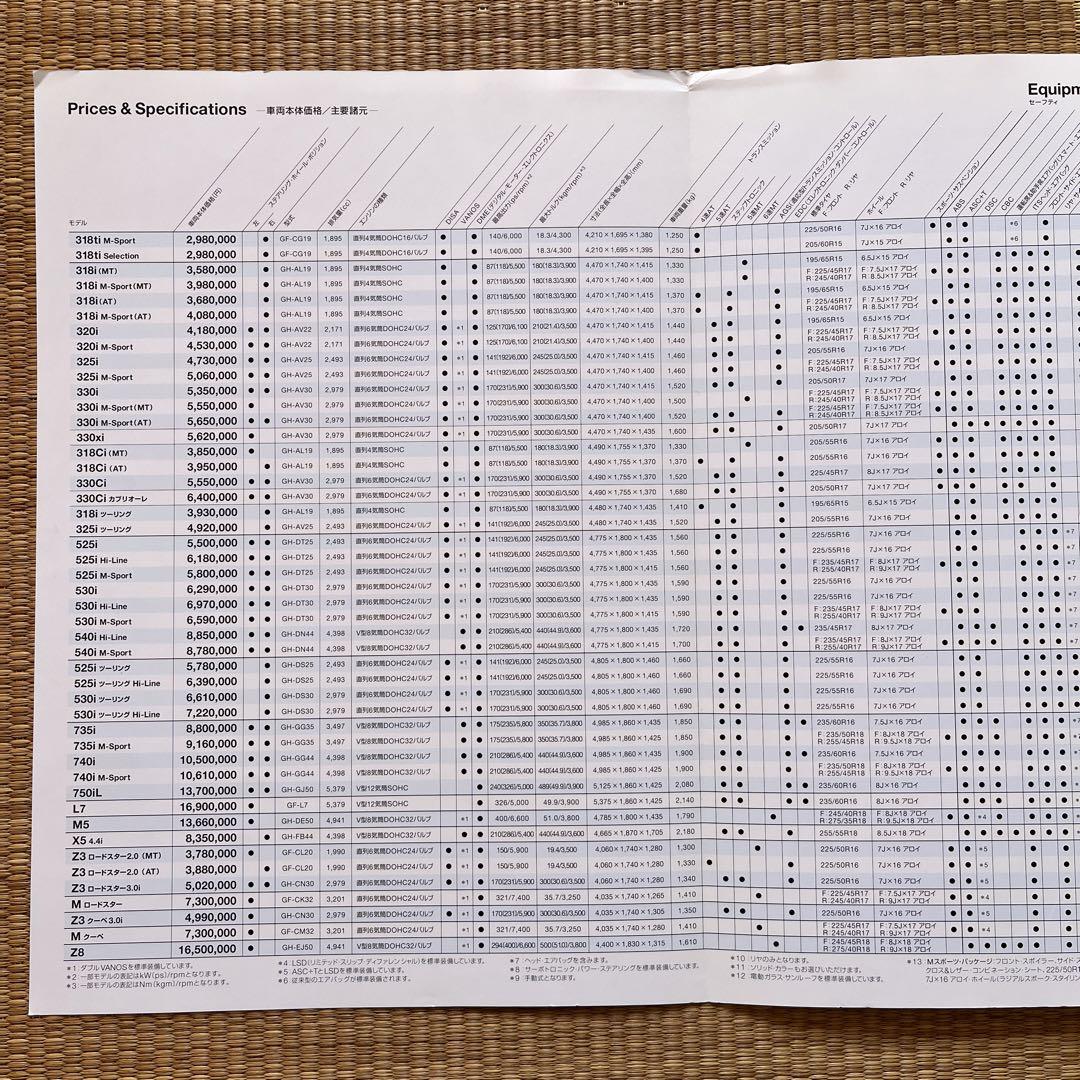 Prices & Specifications —車両本体価格／主要諸元—
Equipm
セーフティ
モデル
車両本体価格(円)
ステアリング・ホイール・ポジション
左
右
型式
排気量(cc)
エンジンの種類
DISA
VANOS
DME(デジタル・モーター・エレクトロニクス)
最高出力(ps/rpm)*2
最大トルク(kgm/rpm)*3
寸法(全長×全幅×全高)(mm)
車両重量(kg)
トランスミッション
4速AT
5速AT
ステップトロニック
5速MT
6速MT
AGS(適応型トランスミッション・コントロール)
EDC(エレクトロニック・ダンパー・コントロール)
標準タイヤ
F:フロント R:リヤ
ホイール
F:フロント R:リヤ
スポーツ・サスペンション
ABS
ASC+T
DSC
CBC
318ti M-Sport 2,980,000 ● GF-CG19 1,895 直列4気筒DOHC16バルブ ● ● 140/6,000 18.3/4,300 4,210×1,695×1,380 1,250 ● 225/50R16 7J×16 アロイ
318ti Selection 2,980,000 ● GF-CG19 1,895 直列4気筒DOHC16バルブ ● ● 140/6,000 18.3/4,300 4,210×1,695×1,395 1,250 ● 205/60R15 7J×15 アロイ
318i (MT) 3,580,000 GH-AL19 1,895 直列4気筒SOHC 87(118)/5,500 180(18.3)/3,900 4,470×1,740×1,415 1,330 195/65R15 6.5J×15 アロイ
318i M-Sport (MT) 3,980,000 GH-AL19 1,895 直列4気筒SOHC 87(118)/5,500 180(18.3)/3,900 4,470×1,740×1,400 1,330 F:225/45R17 R:245/40R17 F:7.5J×17 アロイ R:8.5J×17 アロイ
318i (AT) 3,680,000 GH-AL19 1,895 直列4気筒SOHC 87(118)/5,500 180(18.3)/3,900 4,470×1,740×1,415 1,370 195/65R15 6.5J×15 アロイ
318i M-Sport (AT) 4,080,000 GH-AL19 1,895 直列4気筒SOHC 87(118)/5,500 180(18.3)/3,900 4,470×1,740×1,400 1,370 F:225/45R17 R:245/40R17 F:7.5J×17 アロイ R:8.5J×17 アロイ
320i 4,180,000 GH-AV22 2,171 直列6気筒DOHC24バルブ *1 125(170)/6,100 210(21.4)/3,500 4,470×1,740×1,415 1,440 195/65R15 6.5J×15 アロイ
320i M-Sport 4,530,000 GH-AV22 2,171 直列6気筒DOHC24バルブ *1 125(170)/6,100 210(21.4)/3,500 4,470×1,740×1,400 1,440 F:225/45R17 R:245/40R17 F:7.5J×17 アロイ R:8.5J×17 アロイ
325i 4,730,000 GH-AV25 2,493 直列6気筒DOHC24バルブ *1 141(192)/6,000 245(25.0)/3,500 4,470×1,740×1,415 1,460 205/55R16 7J×16 アロイ
325i M-Sport 5,060,000 GH-AV25 2,493 直列6気筒DOHC24バルブ *1 141(192)/6,000 245(25.0)/3,500 4,470×1,740×1,400 1,460 F:225/45R17 R:245/40R17 F:7.5J×17 アロイ R:8.5J×17 アロイ
330i 5,350,000 GH-AV30 2,979 直列6気筒DOHC24バルブ *1 170(231)/5,900 300(30.6)/3,500 4,470×1,740×1,415 1,520 205/50R17 7J×17 アロイ
330i M-Sport (MT) 5,550,000 GH-AV30 2,979 直列6気筒DOHC24バルブ *1 170(231)/5,900 300(30.6)/3,500 4,470×1,740×1,400 1,500 F:225/45R17 R:245/40R17 F:7.5J×17 アロイ R:8.5J×17 アロイ
330i M-Sport (AT) 5,650,000 GH-AV30 2,979 直列6気筒DOHC24バルブ *1 170(231)/5,900 300(30.6)/3,500 4,470×1,740×1,400 1,520 F:225/45R17 R:245/40R17 F:7.5J×17 アロイ R:8.5J×17 アロイ
330xi 5,620,000 GH-AV30 2,979 直列6気筒DOHC24バルブ *1 170(231)/5,900 300(30.6)/3,500 4,470×1,740×1,435 1,600 205/50R17 7J×17 アロイ
318Ci (MT) 3,850,000 GH-AL19 1,895 直列4気筒SOHC 87(118)/5,500 180(18.3)/3,900 4,490×1,755×1,370 1,330 205/55R16 7J×16 アロイ
318Ci (AT) 3,950,000 GH-AL19 1,895 直列4気筒SOHC 87(118)/5,500 180(18.3)/3,900 4,490×1,755×1,370 1,370 205/55R16 7J×16 アロイ
330Ci 5,550,000 GH-AV30 2,979 直列6気筒DOHC24バルブ *1 170(231)/5,900 300(30.6)/3,500 4,490×1,755×1,370 1,490 225/45R17 8J×17 アロイ
330Ci カブリオーレ 6,400,000 GH-AV30 2,979 直列6気筒DOHC24バルブ *1 170(231)/5,900 300(30.6)/3,500 4,490×1,755×1,370 1,680 205/50R17 7J×17 アロイ
318i ツーリング 3,930,000 GH-AL19 1,895 直列4気筒SOHC 87(118)/5,500 180(18.3)/3,900 4,480×1,740×1,430 1,410 195/65R15 6.5J×15 アロイ
325i ツーリング 4,920,000 GH-AV25 2,493 直列6気筒DOHC24バルブ *1 141(192)/6,000 245(25.0)/3,500 4,480×1,740×1,410 1,520 205/55R16 7J×16 アロイ
525i 5,500,000 GH-DT25 2,493 直列6気筒DOHC24バルブ *1 141(192)/6,000 245(25.0)/3,500 4,775×1,800×1,435 1,560 225/55R16 7J×16 アロイ *7
525i Hi-Line 6,180,000 GH-DT25 2,493 直列6気筒DOHC24バルブ *1 141(192)/6,000 245(25.0)/3,500 4,775×1,800×1,435 1,560 225/55R16 7J×16 アロイ *7
525i M-Sport 5,800,000 GH-DT25 2,493 直列6気筒DOHC24バルブ *1 141(192)/6,000 245(25.0)/3,500 4,775×1,800×1,415 1,560 F:235/45R17 R:255/40R17 F:8J×17 アロイ R:9J×17 アロイ *7
530i 6,290,000 GH-DT30 2,979 直列6気筒DOHC24バルブ *1 170(231)/5,900 300(30.6)/3,500 4,775×1,800×1,435 1,590 225/55R16 7J×16 アロイ *7
530i Hi-Line 6,970,000 GH-DT30 2,979 直列6気筒DOHC24バルブ *1 170(231)/5,900 300(30.6)/3,500 4,775×1,800×1,435 1,590 225/55R16 7J×16 アロイ *7
530i M-Sport 6,590,000 GH-DT30 2,979 直列6気筒DOHC24バルブ *1 170(231)/5,900 300(30.6)/3,500 4,775×1,800×1,415 1,590 F:235/45R17 R:255/40R17 F:8J×17 アロイ R:9J×17 アロイ *7
540i Hi-Line 8,850,000 GH-DN44 4,398 V型8気筒DOHC32バルブ 210(286)/5,400 440(44.9)/3,600 4,775×1,800×1,435 1,720 235/45R17 8J×17 アロイ *7
540i M-Sport 8,780,000 GH-DN44 4,398 V型8気筒DOHC32バルブ 210(286)/5,400 440(44.9)/3,600 4,775×1,800×1,415 1,700 F:235/45R17 R:255/40R17 F:8J×17 アロイ R:9J×17 アロイ *7
525i ツーリング 5,780,000 GH-DS25 2,493 直列6気筒DOHC24バルブ *1 141(192)/6,000 245(25.0)/3,500 4,805×1,800×1,460 1,660 225/55R16 7J×16 アロイ
525i ツーリング Hi-Line 6,390,000 GH-DS25 2,493 直列6気筒DOHC24バルブ *1 141(192)/6,000 245(25.0)/3,500 4,805×1,800×1,460 1,660 225/55R16 7J×16 アロイ
530i ツーリング 6,610,000 GH-DS30 2,979 直列6気筒DOHC24バルブ *1 170(231)/5,900 300(30.6)/3,500 4,805×1,800×1,460 1,690 225/55R16 7J×16 アロイ
530i ツーリング Hi-Line 7,220,000 GH-DS30 2,979 直列6気筒DOHC24バルブ *1 170(231)/5,900 300(30.6)/3,500 4,805×1,800×1,460 1,690 225/55R16 7J×16 アロイ
735i 8,800,000 GH-GG35 3,497 V型8気筒DOHC32バルブ 175(235)/5,800 350(35.7)/3,800 4,985×1,860×1,435 1,850 235/60R16 7.5J×16 アロイ
735i M-Sport 9,160,000 GH-GG35 3,497 V型8気筒DOHC32バルブ 175(235)/5,800 350(35.7)/3,800 4,985×1,860×1,425 1,850 F:235/50R18 R:255/45R18 F:8J×18 アロイ R:9.5J×18 アロイ
740i 10,500,000 GH-GG44 4,398 V型8気筒DOHC32バルブ 210(286)/5,400 440(44.9)/3,600 4,985×1,860×1,435 1,900 235/60R16 7.5J×16 アロイ
740i M-Sport 10,610,000 GH-GG44 4,398 V型8気筒DOHC32バルブ 210(286)/5,400 440(44.9)/3,600 4,985×1,860×1,425 1,900 F:235/50R18 R:255/45R18 F:8J×18 アロイ R:9.5J×18 アロイ
750iL 13,700,000 GH-GJ50 5,379 V型12気筒SOHC 240(326)/5,000 489(49.9)/3,900 5,125×1,860×1,425 2,080 235/60R16 8J×16 アロイ
L7 16,900,000 GF-L7 5,379 V型12気筒SOHC 326/5,000 49.9/3,900 5,375×1,860×1,425 2,140 235/60R16 8J×16 アロイ
M5 13,660,000 GH-DE50 4,941 V型8気筒DOHC32バルブ *1 400/6,600 51.0/3,800 4,785×1,800×1,435 1,790 F:245/40R18 R:275/35R18 F:8J×18 アロイ R:9.5J×18 アロイ *4
X5 4.4i 8,350,000 GH-FB44 4,398 V型8気筒DOHC32バルブ 210(286)/5,400 440(44.9)/3,600 4,665×1,870×1,705 2,180 255/55R18 8.5J×18 アロイ
Z3 ロードスター2.0 (MT) 3,780,000 GF-CL20 1,990 直列6気筒DOHC24バルブ *1 150/5,900 19.4/3,500 4,060×1,740×1,280 1,300 225/50R16 7J×16 アロイ *5
Z3 ロードスター2.0 (AT) 3,880,000 GF-CL20 1,990 直列6気筒DOHC24バルブ *1 150/5,900 19.4/3,500 4,060×1,740×1,280 1,330 225/50R16 7J×16 アロイ
Z3 ロードスター3.0i 5,020,000 GH-CN30 2,979 直列6気筒DOHC24バルブ *1 170(231)/5,900 300(30.6)/3,500 4,060×1,740×1,280 1,340 225/50R16 7J×16 アロイ *5
M ロードスター 7,300,000 GF-CK32 3,201 直列6気筒DOHC24バルブ *1 321/7,400 35.7/3,250 4,035×1,740×1,265 1,410 F:225/45R17 R:245/40R17 F:7.5J×17 アロイ R:9J×17 アロイ *4
Z3 クーペ3.0i 4,990,000 GH-CN30 2,979 直列6気筒DOHC24バルブ *1 170(231)/5,900 300(30.6)/3,500 4,035×1,740×1,305 1,350 225/50R16 7J×16 アロイ *5
M クーペ 7,300,000 GF-CM32 3,201 直列6気筒DOHC24バルブ *1 321/7,400 35.7/3,250 4,035×1,740×1,280 1,410 F:225/45R17 R:245/40R17 F:7.5J×17 アロイ R:9J×17 アロイ *4
Z8 16,500,000 GH-EJ50 4,941 V型8気筒DOHC32バルブ *1 294(400)/6,600 500(51.0)/3,800 4,400×1,830×1,315 1,610 F:245/45R18 R:275/40R18 F:8J×18 アロイ R:9J×18 アロイ
*1 : ダブルVANOSを標準装備しています。
*2 : 一部モデルの表記はkW(ps)/rpmとなります。
*3 : 一部モデルの表記はNm(kgm)/rpmとなります。
*4 : LSD(リミテッド・スリップ・ディファレンシャル)を標準装備しています。
*5 : ASC+TとLSDを標準装備しています。
*6 : 従来型のエアバッグが標準装備されます。
*7 : ヘッド・エアバッグを含みます。
*8 : サーボトロニック・パワー・ステアリングを標準装備しています。
*9 : 手動式となります。
*10 : リヤのみとなります。
*11 : ソリッド・カラーもお選びいただけます。
*12 : 電動ガラス・サンルーフを標準装備しています。
*13 : Mスポーツ・パッケージ:フロント・スポイラー、サイド・ス
クロス&レザー・コンビネーション・シート、225/50R1
7J×16 アロイ・ホイール(ラジアルスポーク・スタイリン